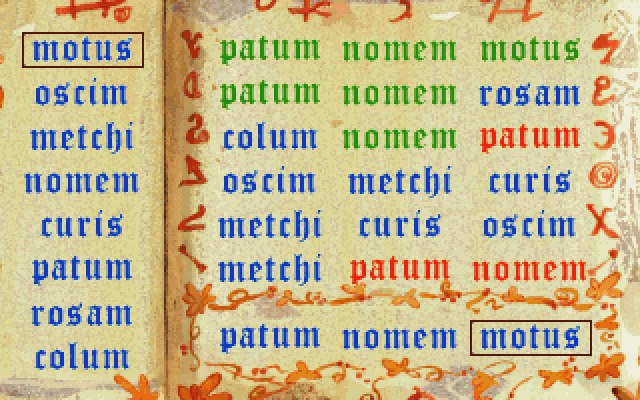 motus
oscim
metchi
nomem
curis
patum
rosam
colum
patum nomem motus
patum nomem rosam
colum nomem patum
oscim metchi curis
metchi curis oscim
metchi patum nomem
patum nomem motus